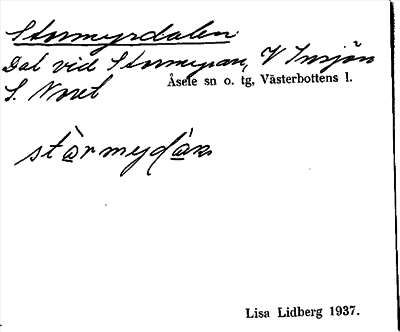 Stormyrdalen
Dal vid Stormyran, V Insjön
S. Noret
Åsele sn o. tg, Västerbottens l.
Lisa Lidberg 1937.